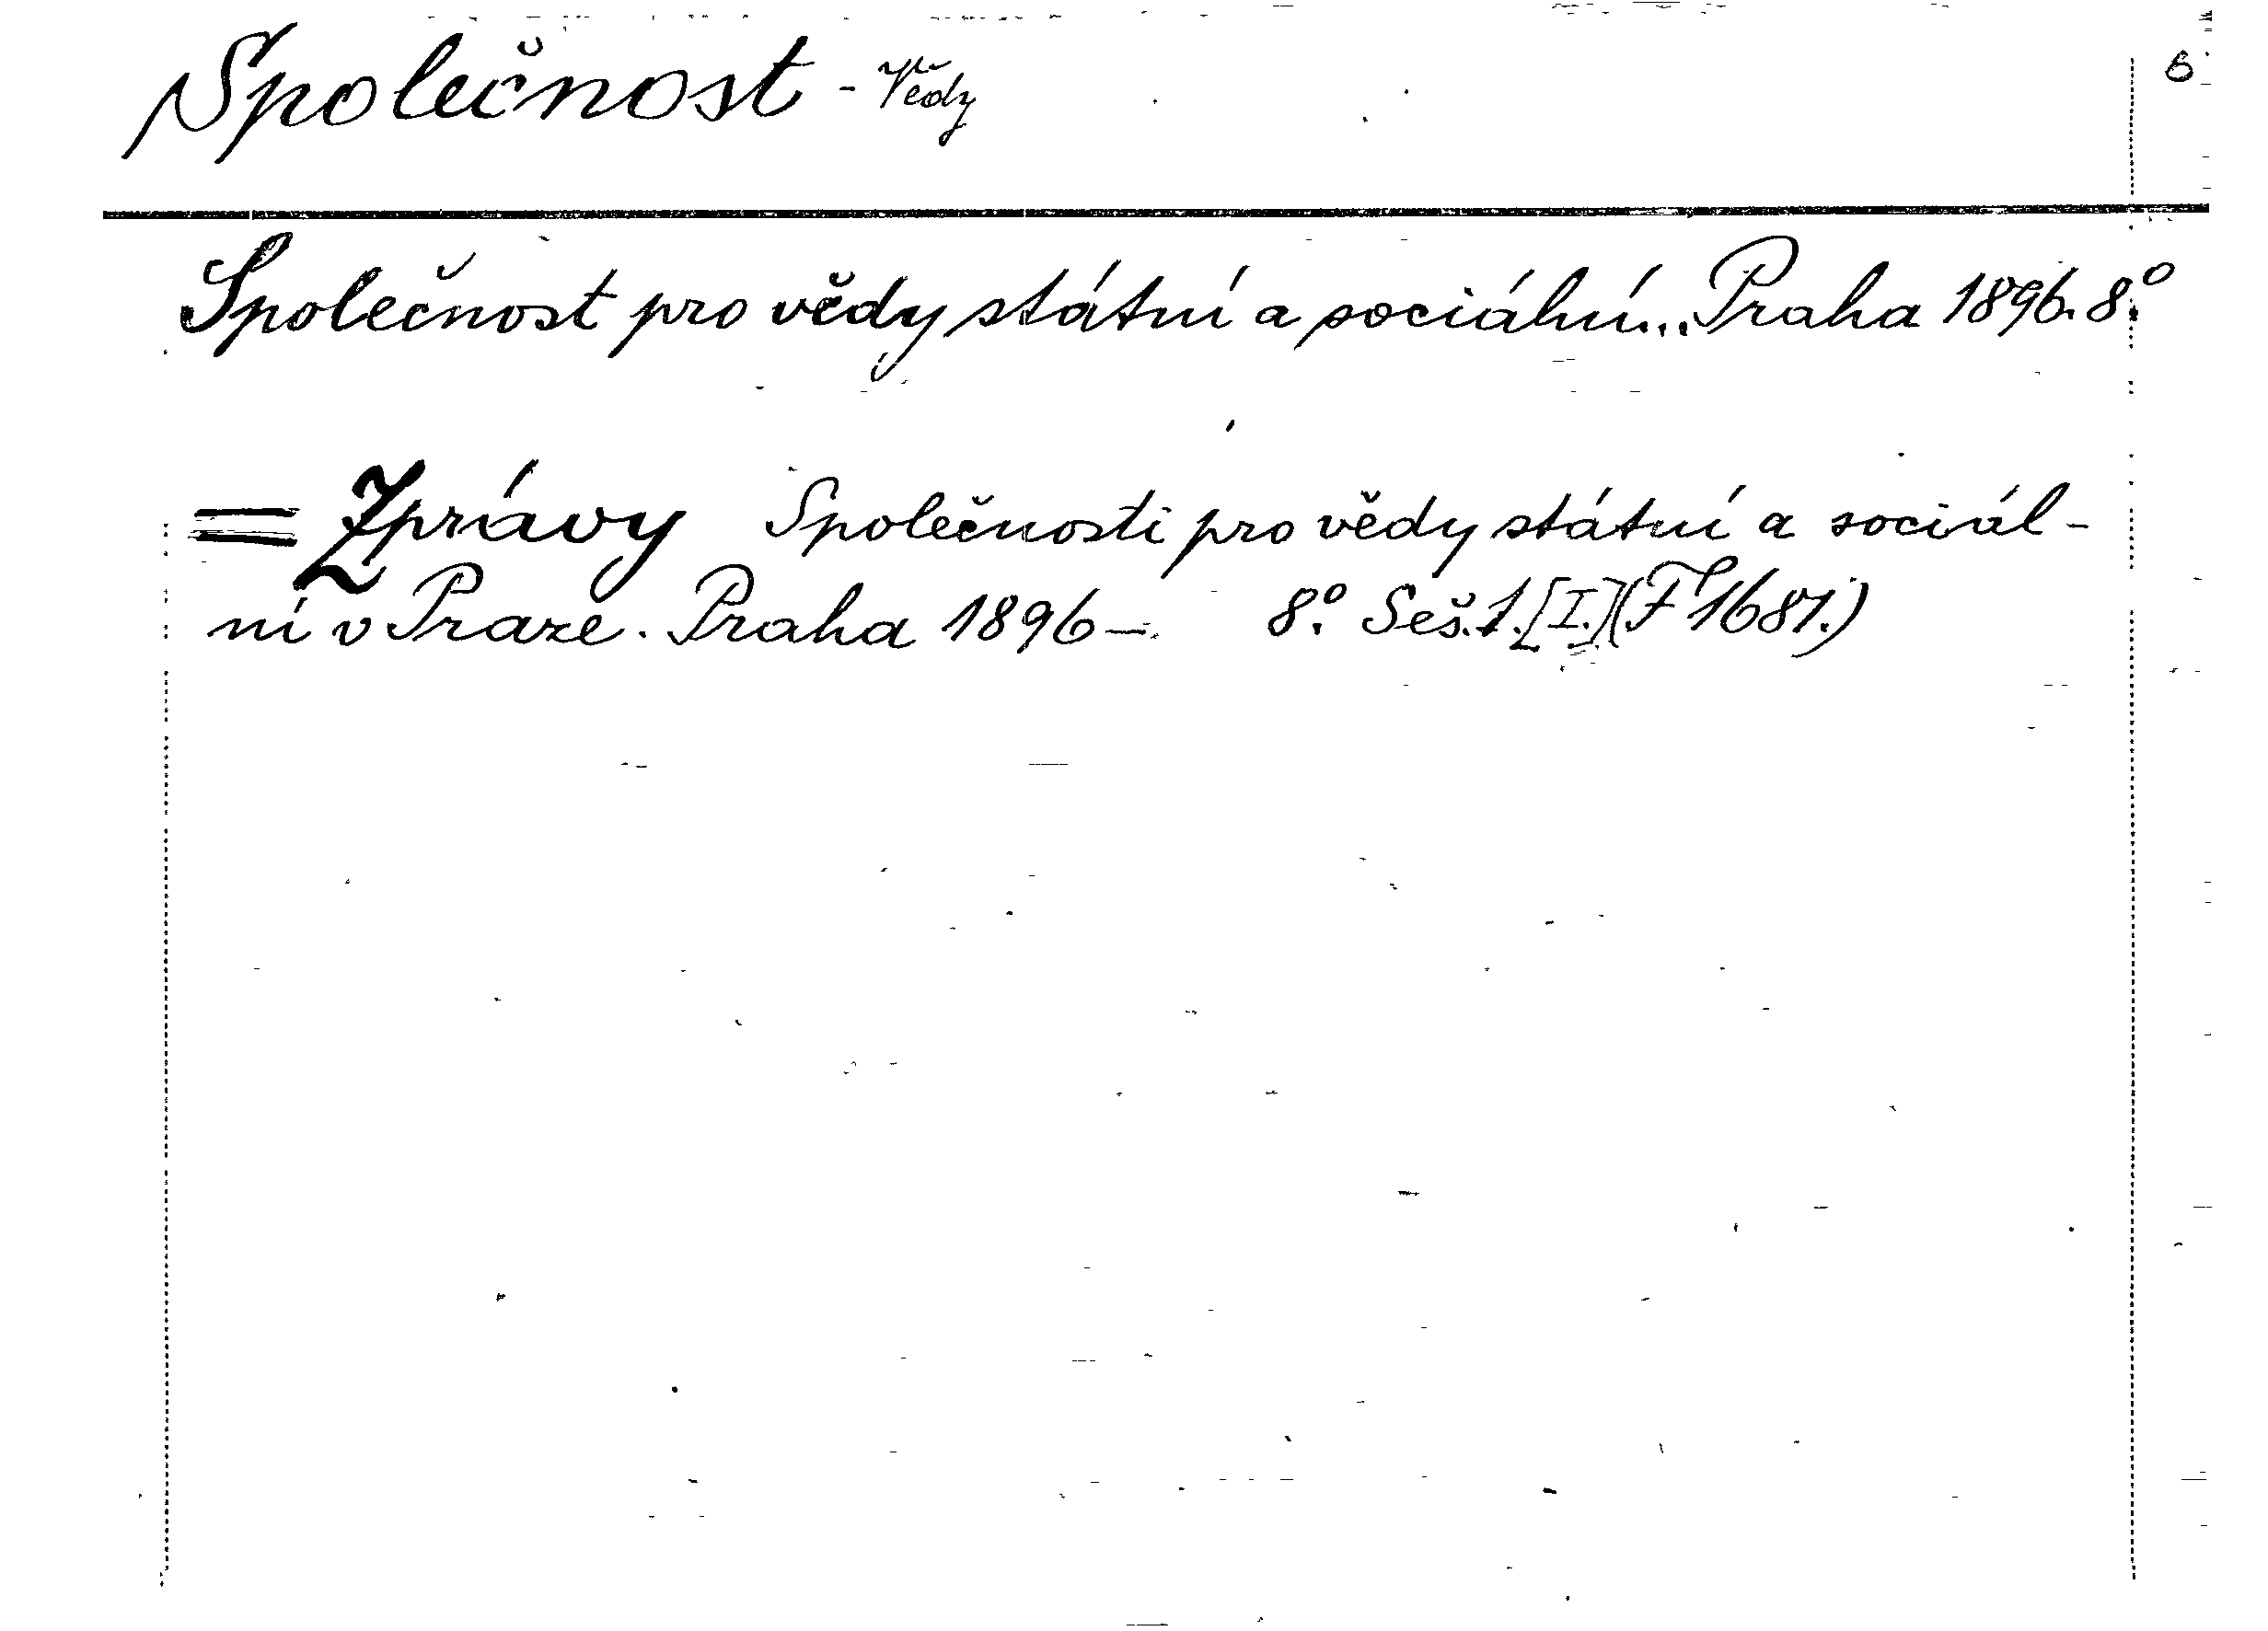 Společnost - Vědy 6
Společnost pro vědy státní a sociální... Praha 1896. 8.°
= Zprávy Společnosti pro vědy státní a sociál-
ní v Praze. Praha 1896- 8.° Seš. 1. [I.] (F 1681.)